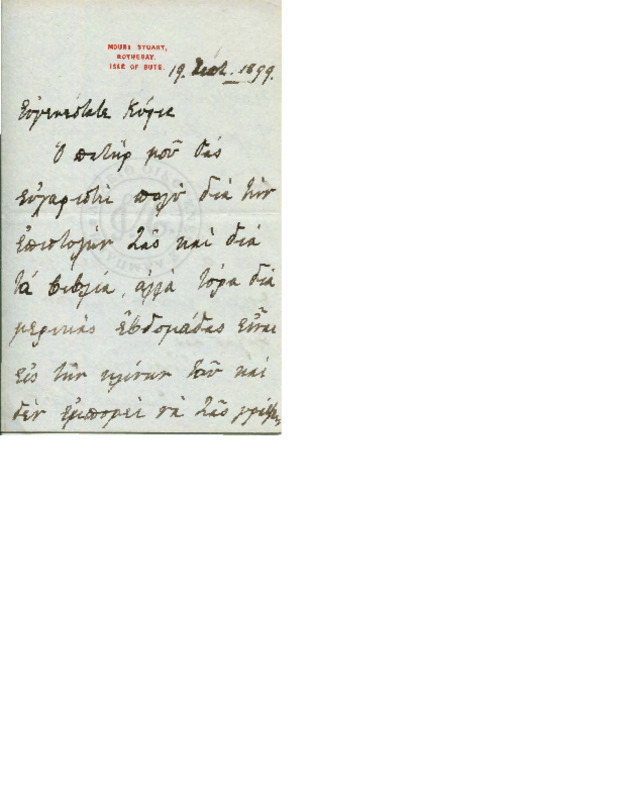 MOUNT STUART,
ROTHESAY.
ISLE OF BUTE.
19. Σεπτ. 1899.
Εὐγενέστατε Κύριε
Ὁ πατήρ μοῦ σάς
εὐχαριστεὶ πολὺ διὰ τὴν
ἐπιστολήν Σᾶς καὶ διά
τά βιβλία, ἀλλὰ τόρα διὰ
μερικὰς ἑβδομάδας εἶναι
εἰς τὴν κλίνην τοῦ καὶ
δὲν ἐμπορεὶ νὰ Σᾶς γράψῃ,